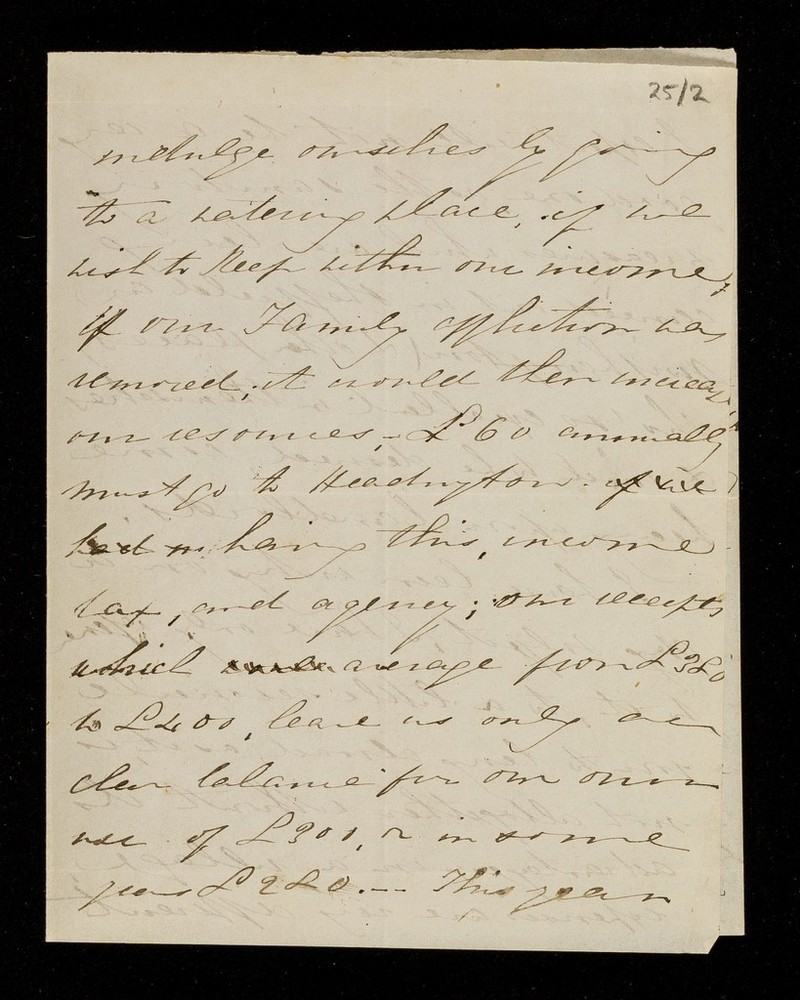 25/2
indulge ourselves by going
to a watering place, if we
wish to keep within our income,
if our Family affliction was
removed, it would then increase
our resources, - £60 annually
must go to Headington. if we
had in having this, income
tax, and agency; our receipts
which average from £380
to £400, leave us only a
clear balance for our own
use of £300, or in some
years £280. -- This year